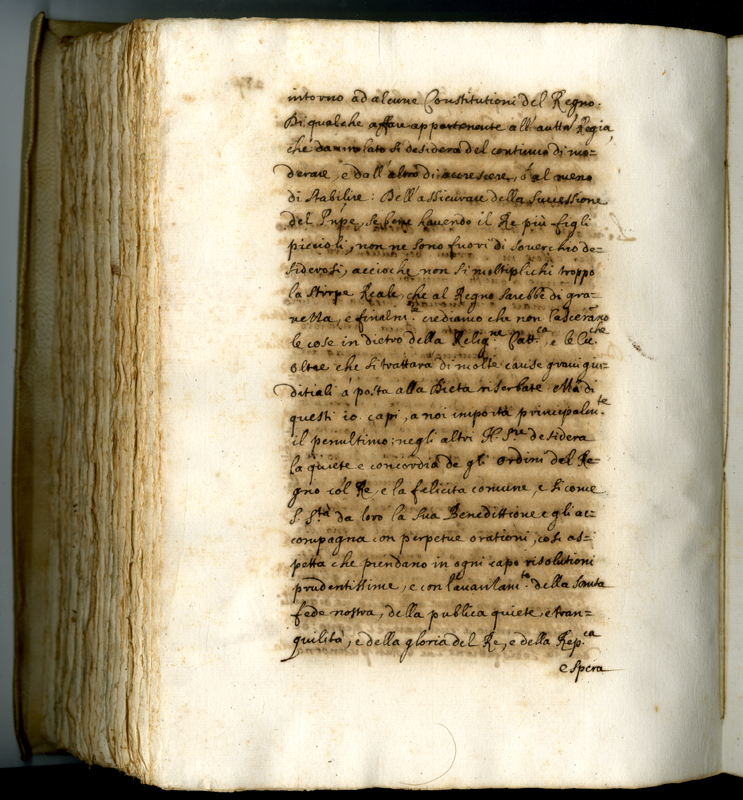 intorno ad alcune Constitutioni del Regno:
Di qualche affare appartenente all'autta Regia,
che da un lato si desidera del continuo di mo=
derare, e dall'altro di accrescere, ò al meno
di stabilire: Dell'assicurare della successione
del Pnpe, se bene havendo il Re più figli
piccioli, non ne sono fuori di soverchio de=
siderosi, accioche non si moltiplichi troppo
la stirpe Reale, che al Regno sarebbe di gra=
vezza, e finalmte crediamo che non lasceranno
le cose in dietro della Religne Cattca, e le
oltre che si trattarà di molte cause gravi giu=
ditiali à posta alla Dieta riserbate. Ma di
questi io. capi, a noi importa principalmte
il penultimo: negli altri N. Sre desidera
la quiete e concordia de gli ordini del Re=
gno col Re, e la felicita comune, e si come
S. Sta da loro la sua Benedittione e gli ac=
compagna con perpetue orationi, cosi as=
petta che prendano in ogni capo risolutioni
prudentissime, e con l'avanzamto della santa
fede nostra, della publica quiete, e tran=
quilità, e della gloria del Re, e della Repca
e spera